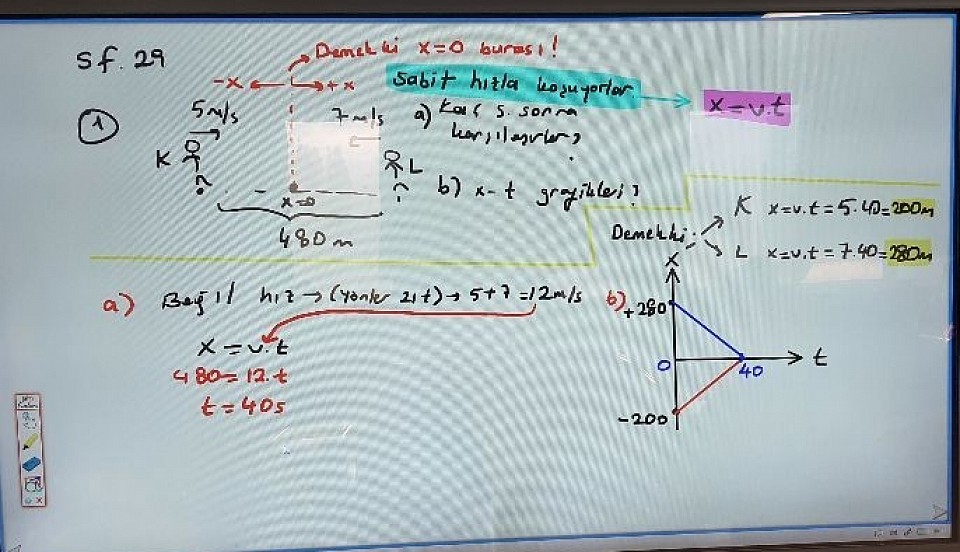 sf. 29
Demek ki x=0 burası!
-x +x
Sabit hızla koşuyorlar
x=v.t
1
5m/s
7m/s
a) Kaç s. sonra
karşılaşırlar?
K
L
b) x-t grafikleri?
x=0
480m
Demek ki:
K x=v.t=5.40=200m
L x=v.t=7.40=280m
a) Bağıl hız → (yönler zıt) → 5+7=12m/s
x=v.t
480=12.t
t=40s
b)
x
+280
0
40
t
-200